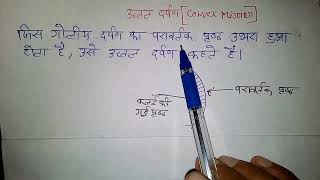 उत्तल दर्पण [CONVEX MIRROR]
जिस गोलीय दर्पण का परावर्तक पृष्ठ उभरा हुआ
होता है, उसे उत्तल दर्पण कहते हैं।
परावर्तक पृष्ठ
कलई की
गई पृष्ठ